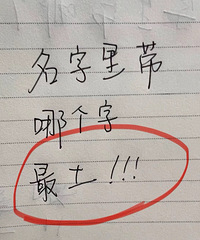 名字里带
哪个字
最土!!!